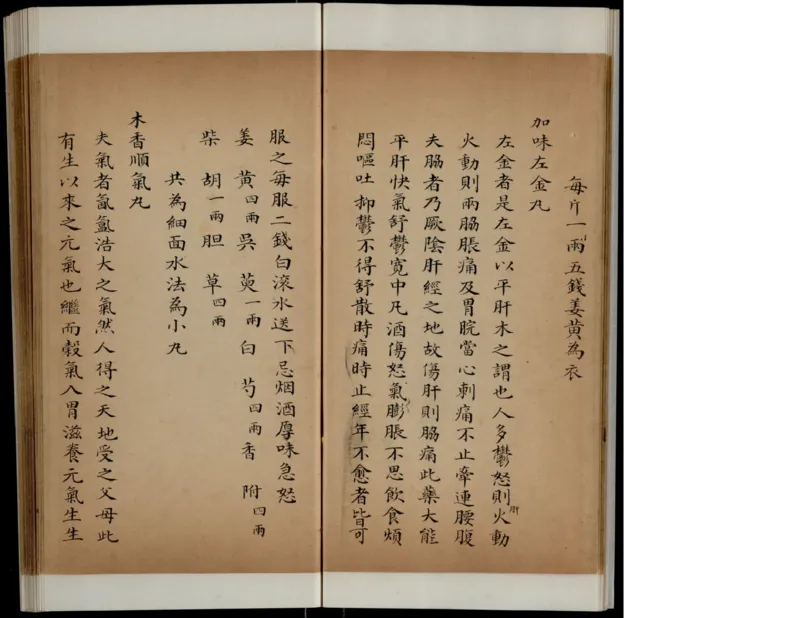 每斤一兩五錢姜黃為衣
加味左金丸
左金者是左金以平肝木之謂也人多鬱怒則肝火動
火動則兩脇脹痛及胃脘當心刺痛不止牽連腰腹
夫脇者乃厥陰肝經之地故傷肝則脇痛此藥大能
平肝快氣舒鬱寬中凡酒傷怒氣膨脹不思飲食煩
悶嘔吐抑鬱不得舒散時痛時止經年不愈者皆可
服之每服二錢白滾水送下忌烟酒厚味急怒
姜黃四兩吳萸一兩白芍四兩香附四兩
柴胡一兩胆草四兩
共為細面水法為小丸
木香順氣丸
夫氣者氤氳浩大之氣然人得之天地受之父母此
有生以來之元氣也繼而穀氣入胃滋養元氣生生